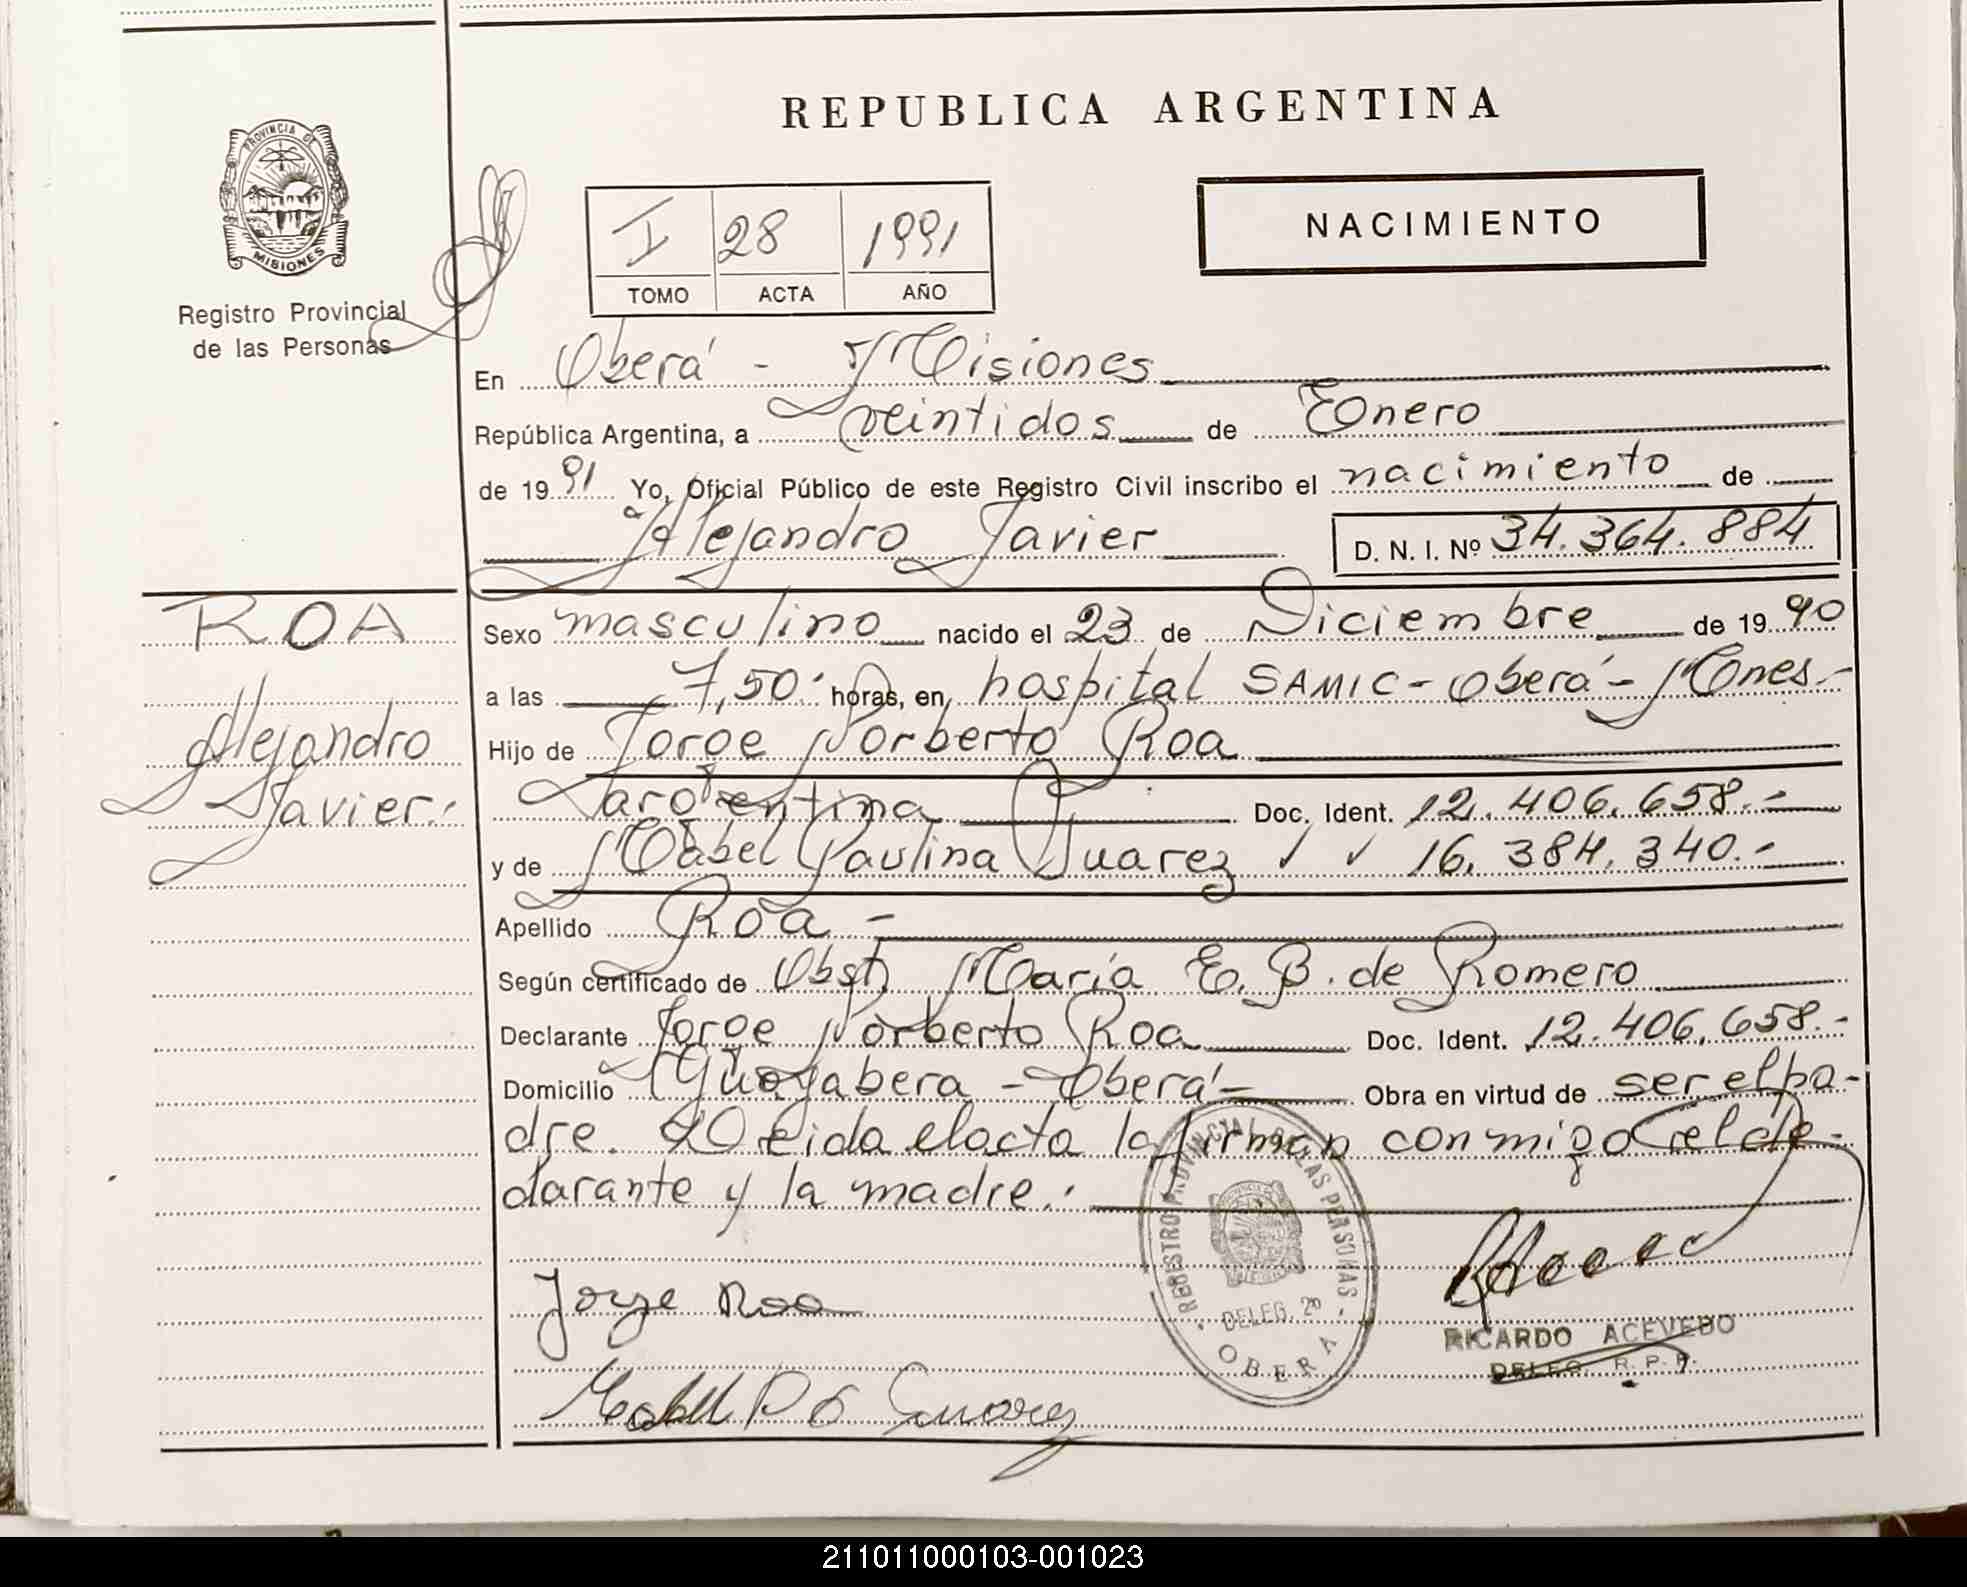 REPUBLICA ARGENTINA
PROVINCIA DE
MISIONES
Registro Provincial
de las Personas
I 28 1991
TOMO ACTA AÑO
NACIMIENTO
En Oberá - Misiones
República Argentina, a veintidos de Enero
de 1991 Yo, Oficial Público de este Registro Civil inscribo el nacimiento de
Alejandro Javier D. N. I. Nº 34.364.884
ROA
Alejandro
Javier.-
Sexo masculino nacido el 23 de Diciembre de 1990
a las 7,50.- horas, en hospital SAMIC - Oberá - Mnes.-
Hijo de Jorge Norberto Roa
argentina Doc. Ident. 12.406.658.-
y de Mabel Paulina Suarez 16.384.340.-
Apellido Roa -
Según certificado de Obst. María E. B. de Romero
Declarante Jorge Norberto Roa Doc. Ident. 12.406.658.-
Domicilio Guayabera - Oberá - Obra en virtud de ser el pa-
dre. Leida el acta la firman conmigo el de-
clarante y la madre.-
REGISTRO PROVINCIAL DE LAS PERSONAS
DELEG. 2º
OBERA
Jorge Roa
RICARDO ACEVEDO
DELEG. R. P. P.
Suarez
211011000103-001023